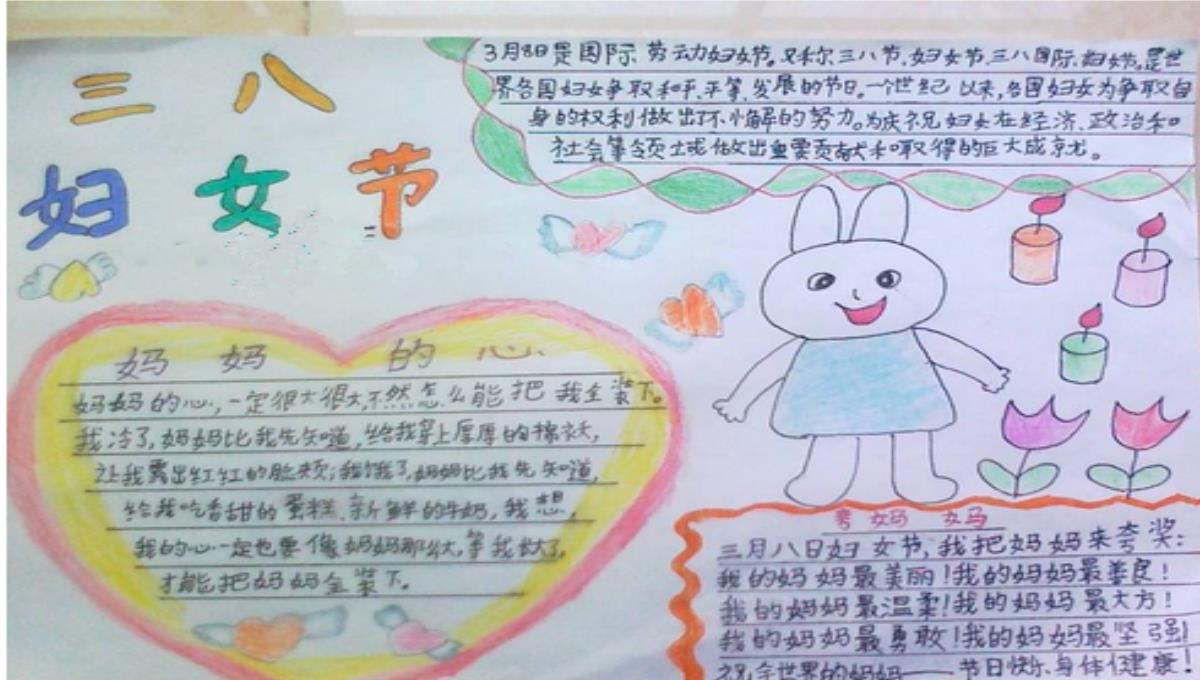 三八
妇女节
3月8日是国际劳动妇女节。又称三八节、妇女节、三八国际妇女节。是世
界各国妇女争取和平、平等、发展的节日。一个世纪以来,各国妇女为争取自
身的权利做出了不懈的努力。为庆祝妇女在经济、政治和
社会等领域做出重要贡献和取得的巨大成就。
妈妈的心
妈妈的心,一定很大很大,不然怎么能把我全装下。
我冷了,妈妈比我先知道,给我穿上厚厚的棉衣,
让我露出红红的脸颊;我饿了,妈妈比我先知道,
给我吃香甜的蛋糕、新鲜的牛奶,我想,
我的心一定也要像妈妈那么大,等我长大了,
才能把妈妈全装下。
夸妈妈
三月八日妇女节,我把妈妈来夸奖:
我的妈妈最美丽!我的妈妈最善良!
我的妈妈最温柔!我的妈妈最大方!
我的妈妈最勇敢!我的妈妈最坚强!
祝全世界的妈妈——节日快乐、身体健康!